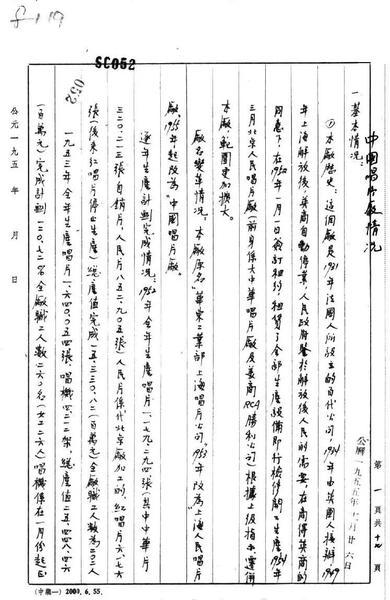 SC052
052
第一頁共十 頁
中國唱片廠情况
公曆一九五五年 月廿六日
一 基本情况:
①本廠歷史,這個廠是1921年法國人所設立的百代公司,1934年由英國人接辦1949
年上海解放後,英商自動停業,人民政府鑒於解放後人民的需要,在商得英商的
同意下,在1952年1月1日簽訂租約租賃了全部生產設備即行檢修開工生產1954年
三月北京人民唱片廠(前身係大中華唱片廠及美商RCA勝利公司)根據上級指示遷併
本廠,範圍更加擴大。
廠名變革情况,本廠原名"華東工業部上海唱片公司"1953年改為"上海人民唱片
廠,1955年起改為"中國唱片廠。
逐年生產計劃完成情况:1952年全年生產唱片一、一七九二九四張(其中中華片
三二〇二二三張自銷片,人民片八五二、九〇五張)人民片係代北京廠加工的,紅唱片六、一七六
張(後來紅唱片停止生產)總產值完成一五、三三〇、八二(百萬元)全廠職工人數為二〇二人
一九五三年全年生產唱片一、六四〇、〇五四張 唱機四二一二架,總產值二五、四四八·四六
(百萬元)完成計劃一二〇、七二%全廠職工人數二六〇名(女工二六人)唱機係在一月份起正
公元一九五 年 月 日
2000.6.55.